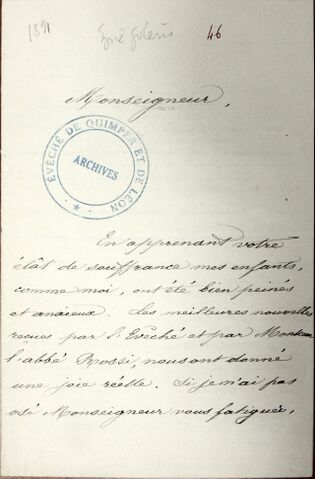 1891
46
Monseigneur,
ÉVÊCHÉ DE QUIMPER ET DE LÉON
ARCHIVES
En apprenant votre
état de souffrance mes enfants,
comme moi, ont été bien peinés
et anxieux. Les meilleures nouvelles
reçues par l'Evêché et par Monsieur
l'abbé Rossi, nous ont donné
une joie réelle. Si je n'ai pas
osé Monseigneur vous fatiguer,